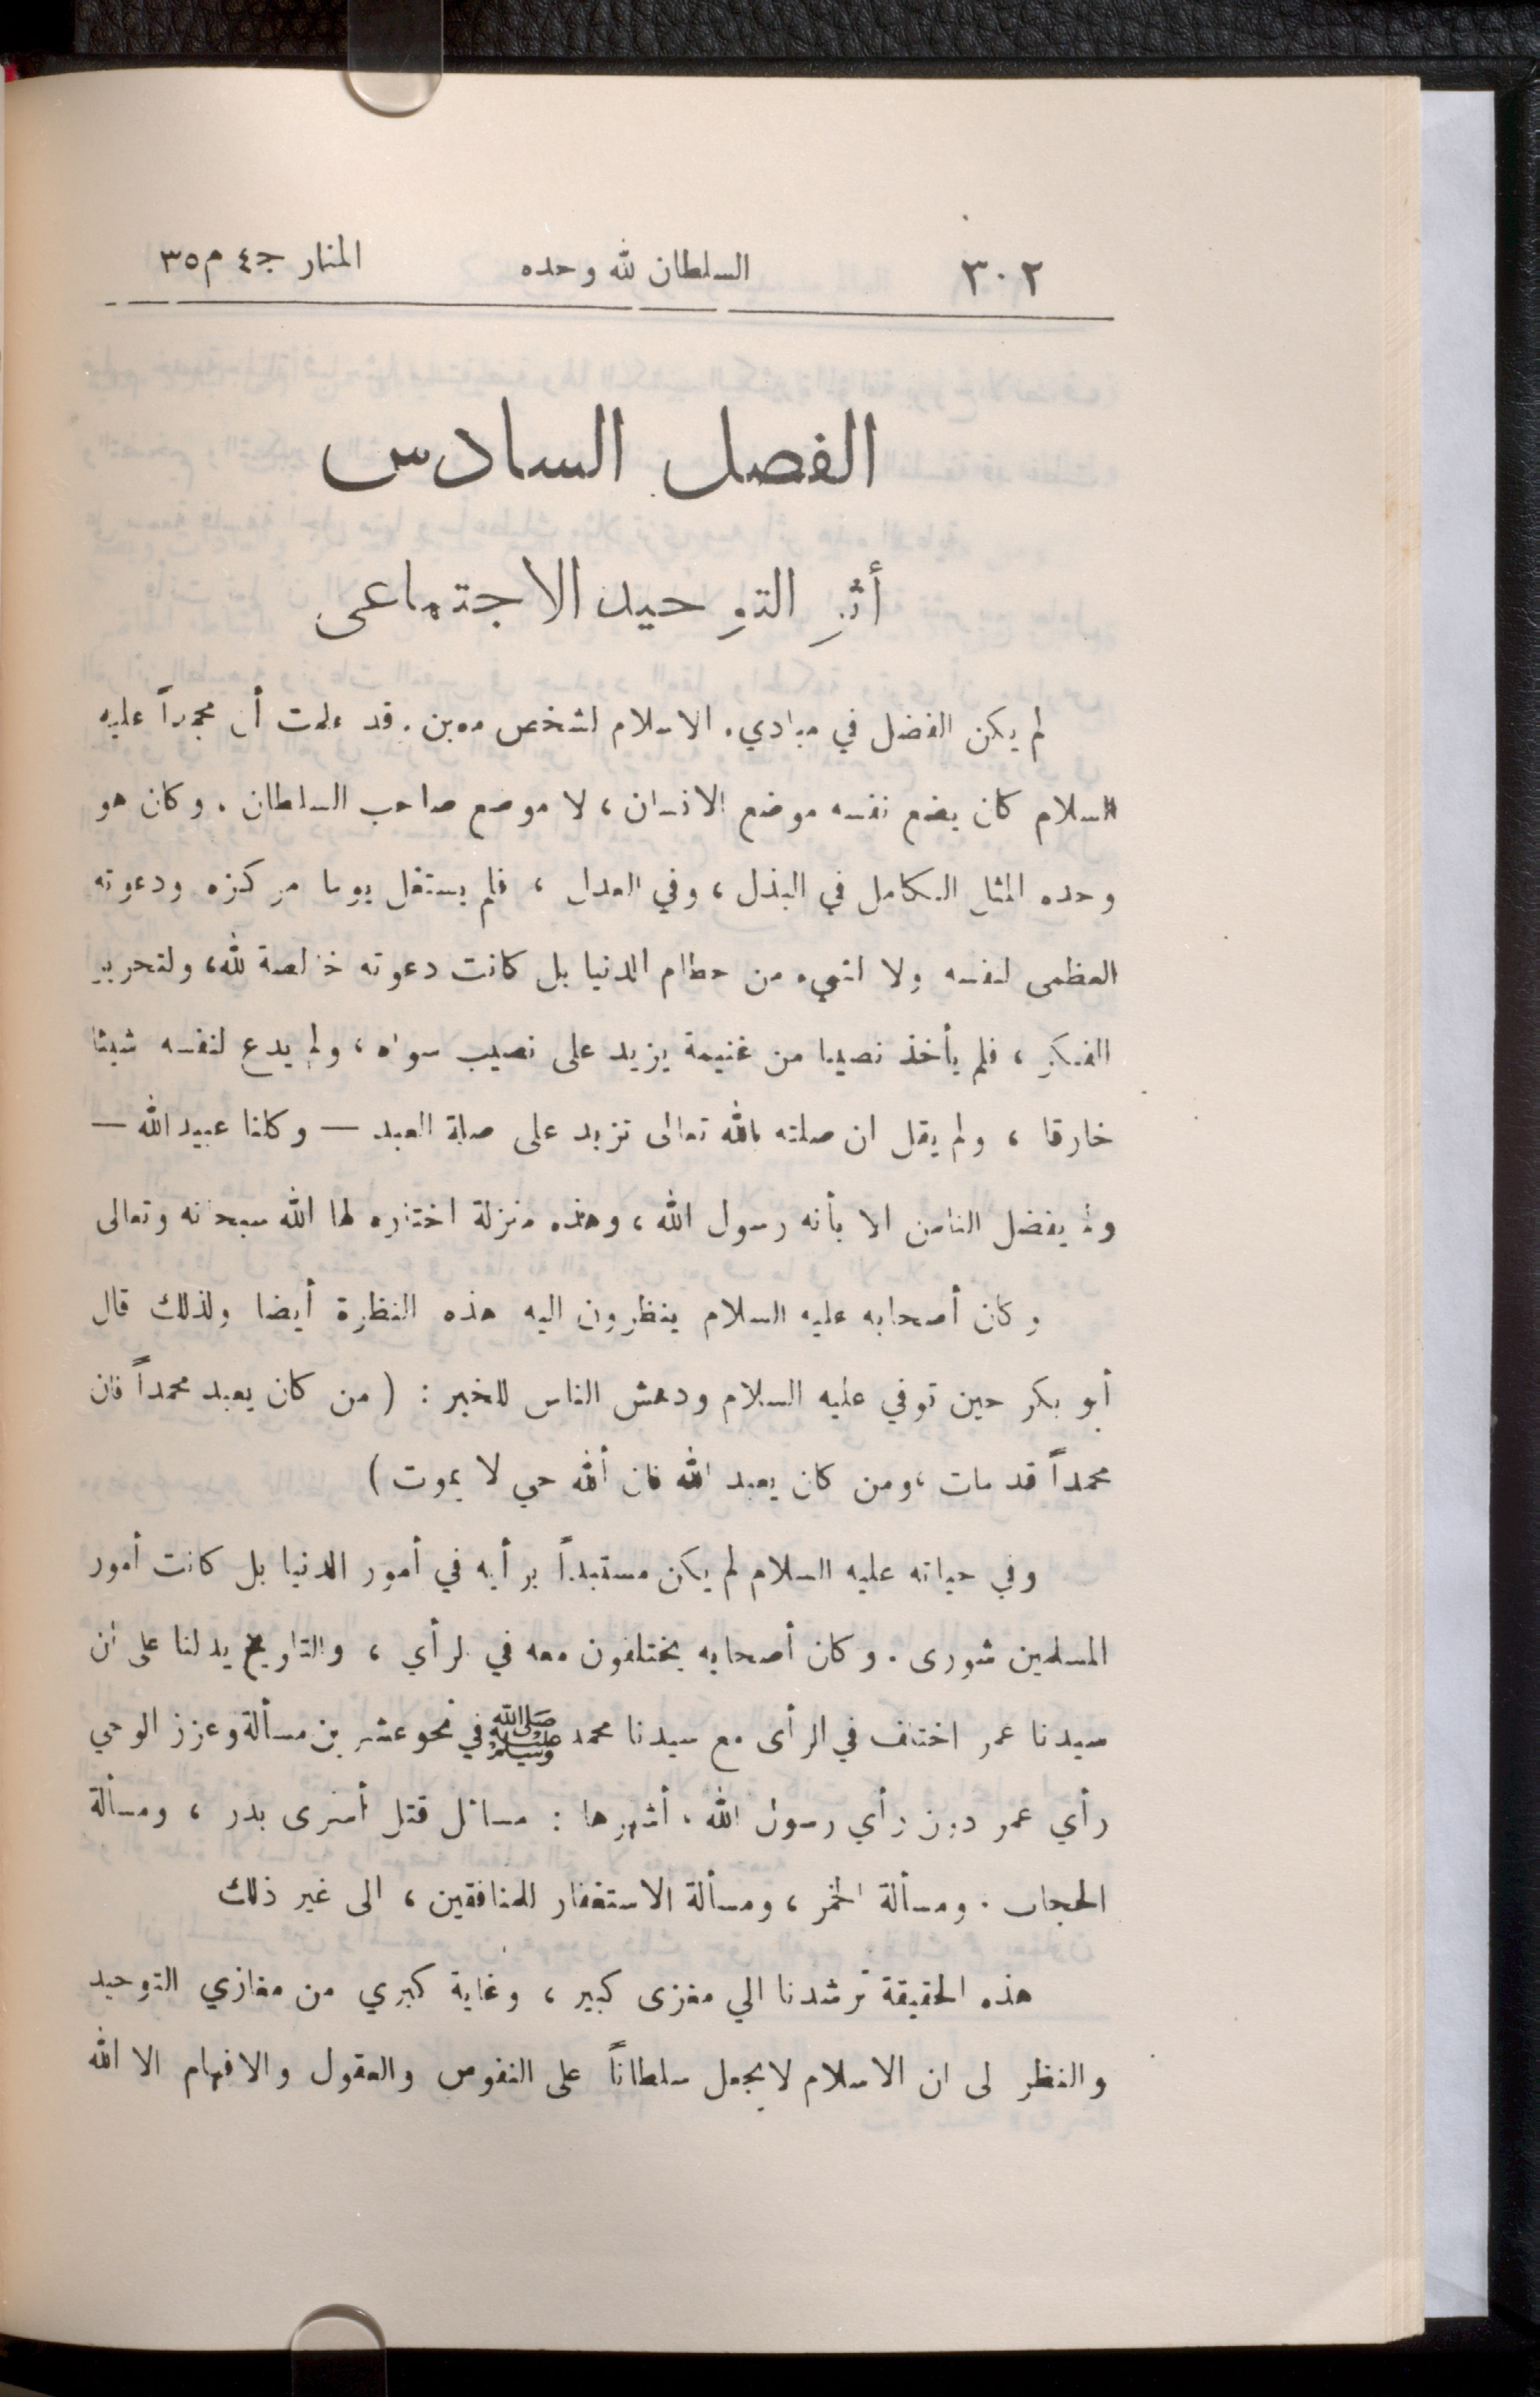 ٣٠٢ السلطان لله وحده المنار ج٤ م٣٥
الفصل السادس
أثر التوحيد الاجتماعى
لم يكن الفضل في مبادىء الاسلام لشخص معين. قد علمت أن محمداً عليه
السلام كان يضع نفسه موضع الانسان ، لا موضع صاحب السلطان . وكان هو
وحده المثل الكامل في البذل ، وفي العدل ، فلم يستغل يوما مركزه ودعوته
العظمى لنفسه ولا لشيء من حطام الدنيا بل كانت دعوته خالصة لله، ولتحرير
الفكر ، فلم يأخذ نصيبا من غنيمة يزيد على نصيب سواه ، ولم يدع لنفسه شيئا
خارقا ، ولم يقل ان صلته بالله تعالى تزيد على صلة العبد — وكلنا عبيد الله —
ولم يفضل الناس الا بأنه رسول الله ، وهذه منزلة اختاره لها الله سبحانه وتعالى
وكان أصحابه عليه السلام ينظرون اليه هذه النظرة أيضا ولذلك قال
أبو بكر حين توفي عليه السلام ودهش الناس للخبر : ( من كان يعبد محمداً فان
محمداً قد مات ، ومن كان يعبد الله فان ألله حي لا يموت )
وفي حياته عليه السلام لم يكن مستبداً برأيه في أمور الدنيا بل كانت أمور
المسلمين شورى . وكان أصحابه يختلفون معه في الرأي ، والتاريخ يدلنا على ان
سيدنا عمر اختلف في الرأى مع سيدنا محمد ﷺ في نحو عشرين مسألة وعزز الوحي
رأي عمر دون رأي رسول الله . أشهرها : مسائل قتل أسرى بدر ، ومسألة
الحجاب . ومسألة الخمر ، ومسألة الاستغفار للمنافقين ، الى غير ذلك
هذه الحقيقة ترشدنا الي مغزى كبير ، وغاية كبري من مغازي التوحيد
والنظر لى ان الاسلام لايجعل سلطاناً على النفوس والعقول والافهام الا الله